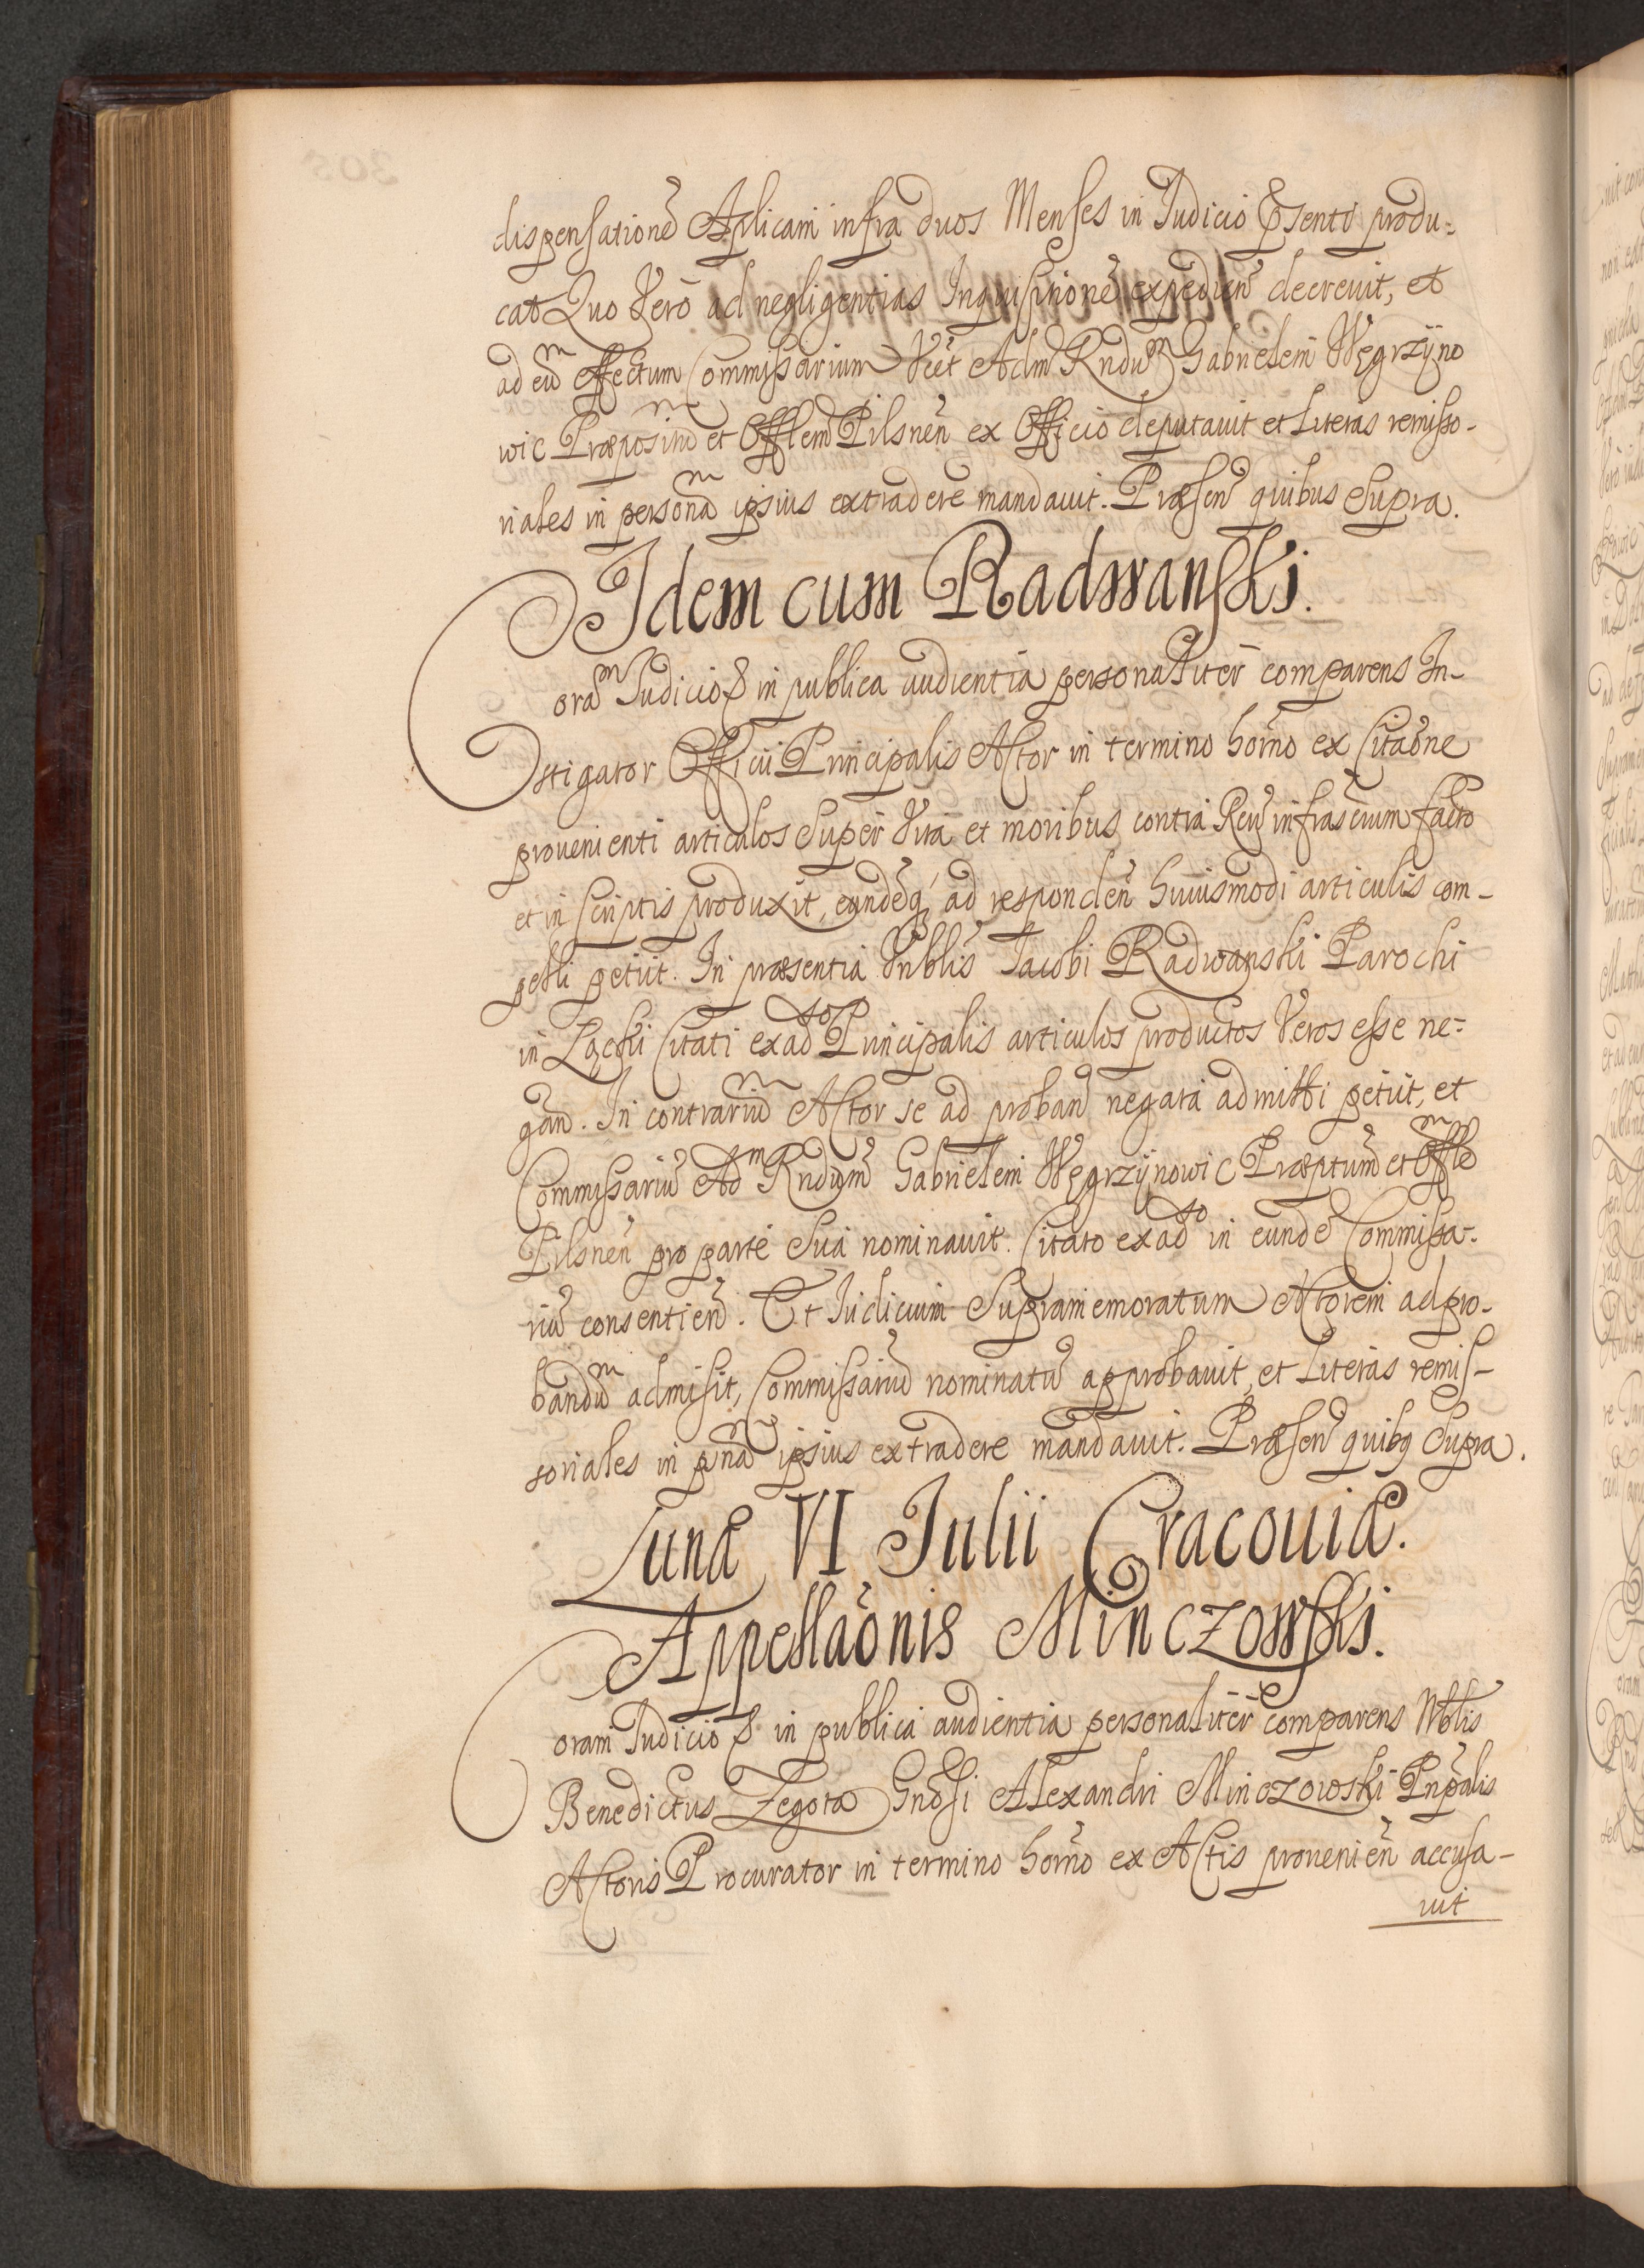 dispensationē Aplicam infra duos Menses in Judicio Psenti produ:
cat Quo Vero ad negligentias Inquisitionē expedien̄ decrevit, et
ad eūm effectum Commissarium Vēt Adm̄ Rndūm Gabrielem Węgrzyno
wic Præpositūm et Offlem Pilsnen̄ ex Officio deputavit et Literas remisso-
riales in personām ipsius extradere mandavit. Præsen̄ quibus Supra.
Idem cum Radwanski.
Corām Judicio &. in publica audientia personaliter comparens In-
stigator Officii Principalis Actor in termino hōrno ex Citāone
provenienti articulos Super Vita et moribus contra Reū infrascrium facto
et in Scriptis produxit, eundēq́ ad responden̄ huiusmodi articulis com-
pelli petiit. In præsentia Vnblis Jacobi Radwanski Parochi
in Łącki Citati ex adso Principalis articulos productos Veros esse ne:
gan̄. In contrariūm Actor se ad proban̄ negata admitti petiit, et
Commissariū Adm Rndum̄ Gabrielem Węgrzynowic Præptum̄ et Offlēm
Pilsnen̄ pro parte Sua nominavit. Citato ex adso in eundē Commissa-
riū consentien̄. Et Judicium Supramemoratum Actorem ad pro-
bandūm admisit, Commissariū nominatū approbavit, et Literas remis-
soriales in pnām ipsius extradere mandavit. Præsen̄ quibq Supra.
Lunæ VI Julii Cracoviæ.
Appellāonis Minczowski.
Coram Judicio &. in publica audientia personaliter comparens Nblis
Benedictus Zegota Gnōsi Alexandri Minczowski Pnp̄alis
Actoris Procurator in termino hōrno ex Actis provenien̄ accusa-
vit